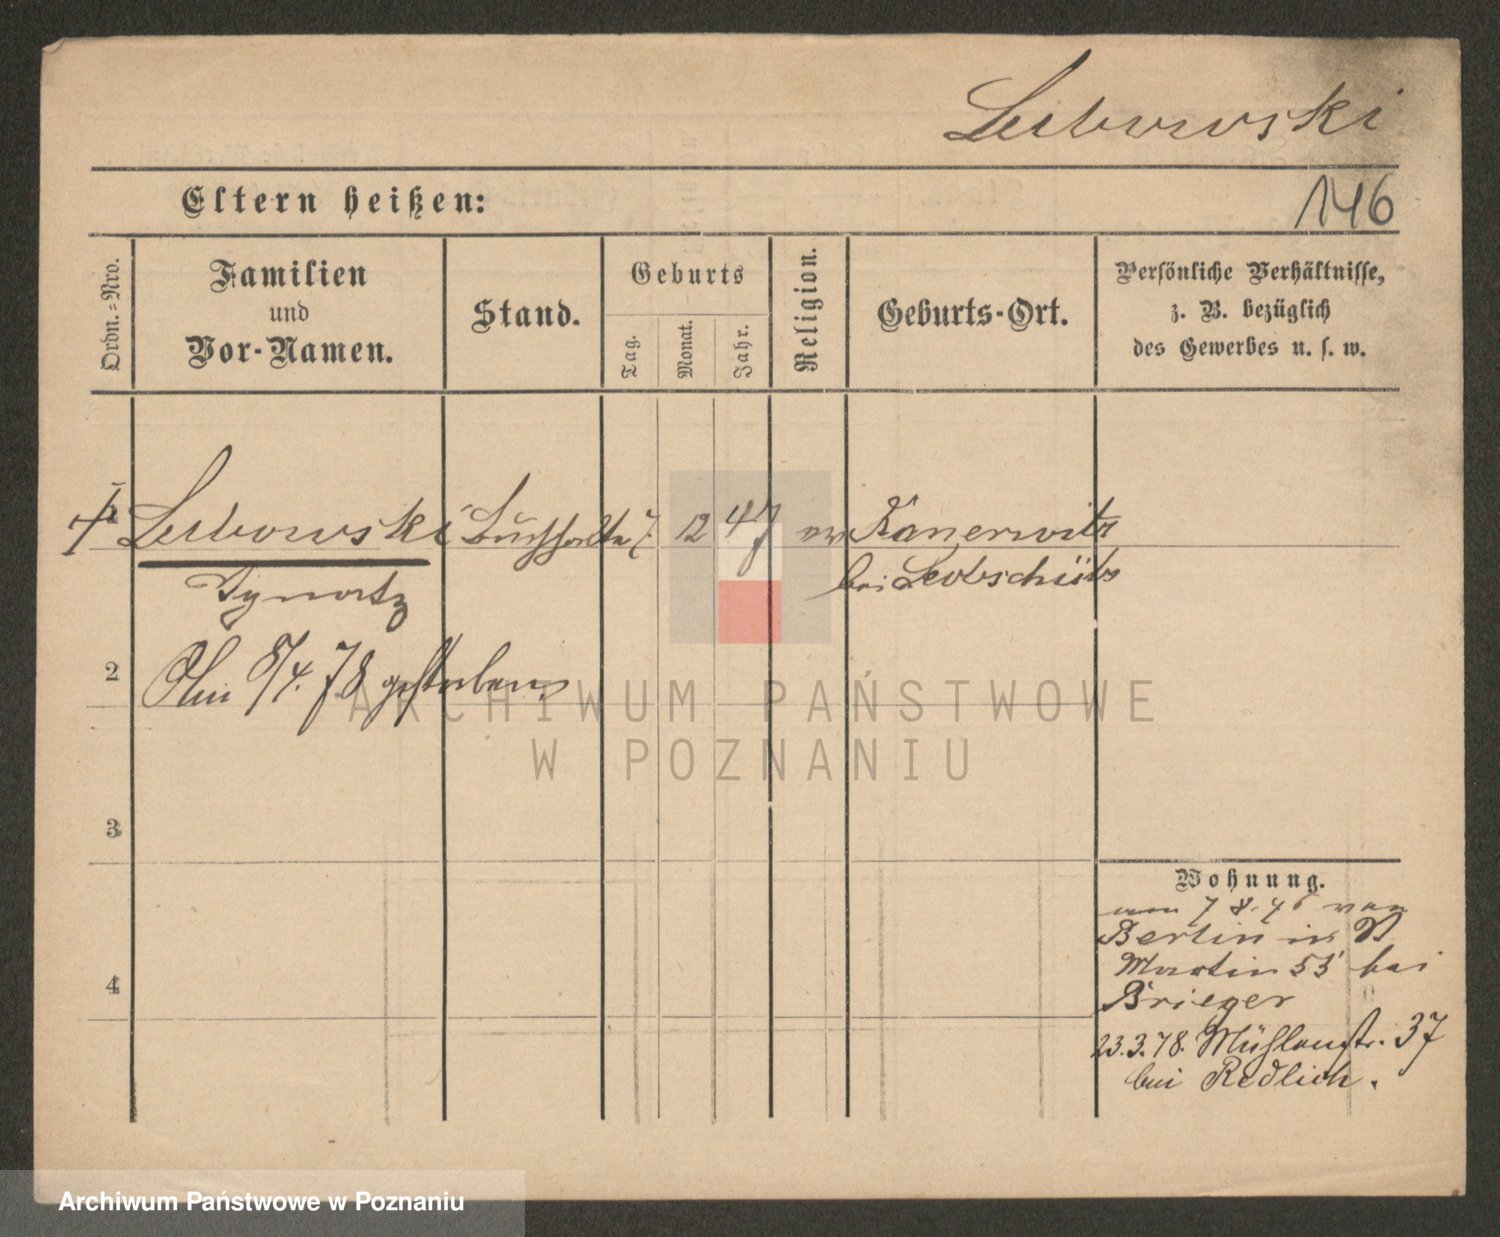 Lubowski
Eltern heißen:
146
Ordn.-Nro.
Familien
und
Vor-Namen.
Stand.
Geburts
Tag.
Monat.
Jahr.
Religion.
Geburts-Ort.
Persönliche Verhältnisse,
z. B. bezüglich
des Gewerbes u. s. w.
1 Lubowski Buchhalter 7. 12 47 Kanerwitz
bei Leobschütz
Ignatz
2 Am 8/4. 78 gestorben.
ARCHIWUM PAŃSTWOWE
W POZNANIU
3
4
Wohnung.
am 7 8. von
Berlin in
Martin 55 bei
Brieger
23.3.78. Mühlenstr. 37
bei Redlich.
Archiwum Państwowe w Poznaniu